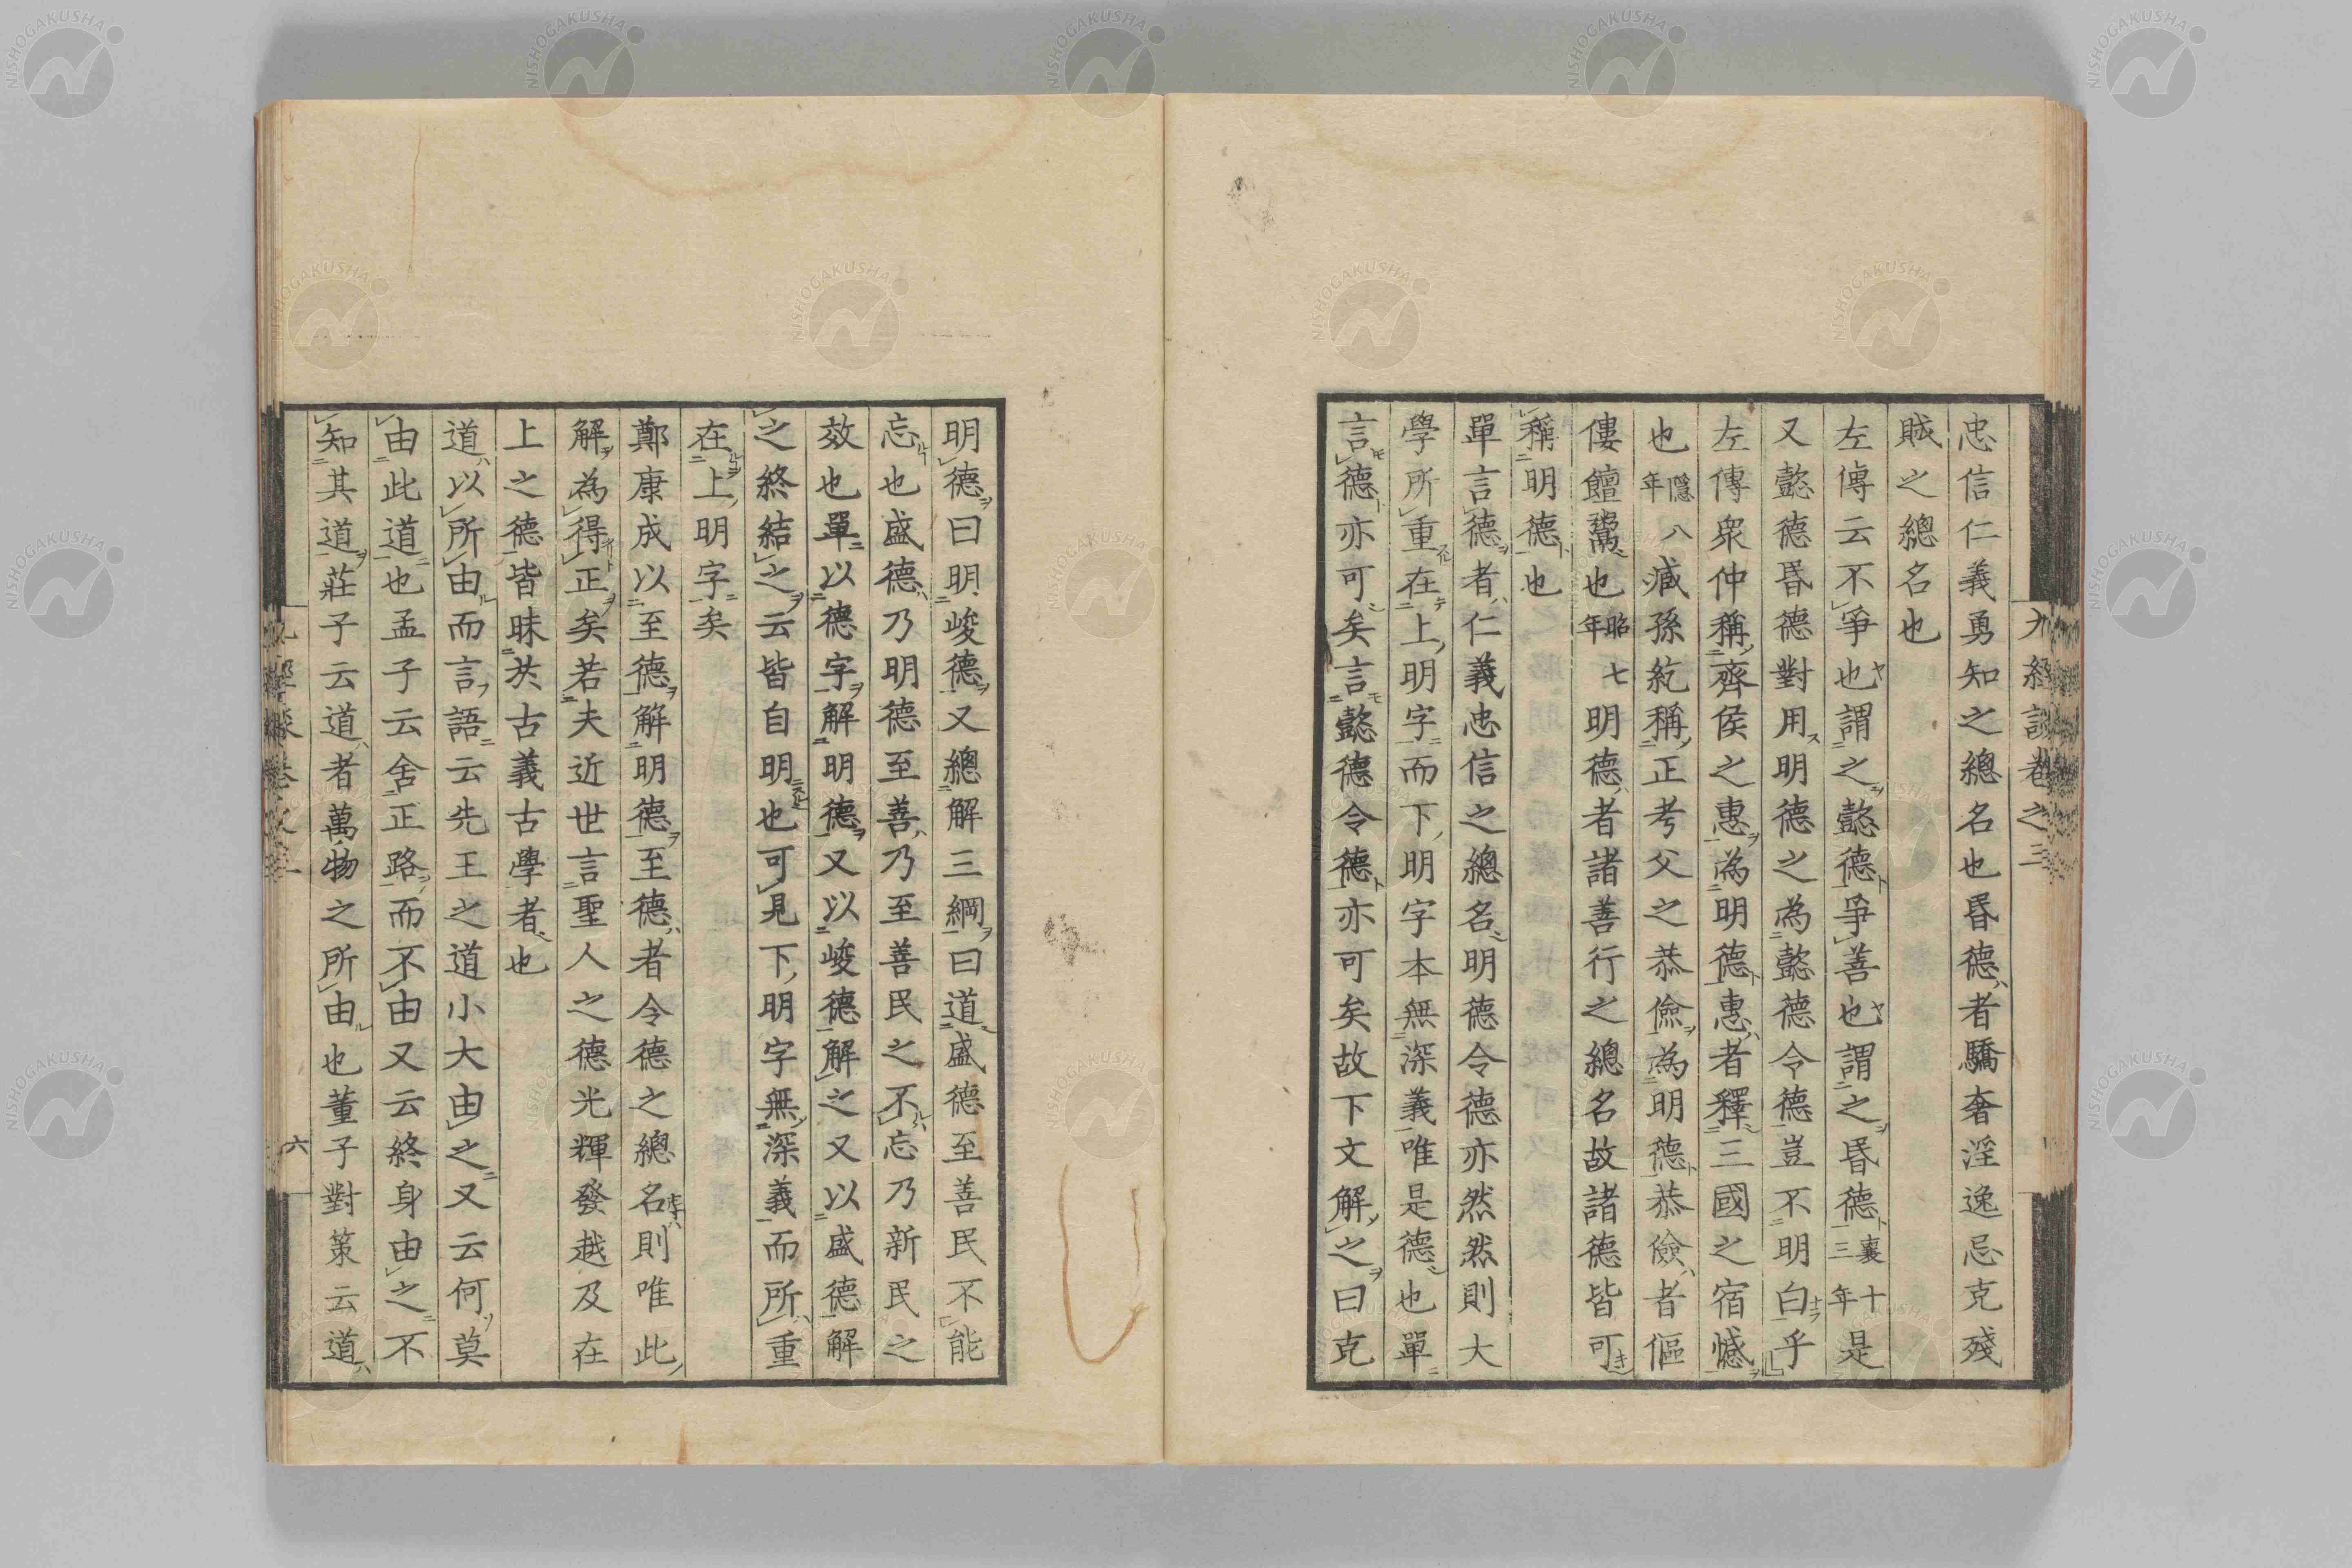 九經談卷之三
忠信仁義勇知之總名也昏德者驕奢淫逸忌克殘
賊之總名也
左傳云不爭也謂之懿德爭善也謂之昏德襄十三年是
又懿德昏德對用明德之為懿德令德豈不明白乎
左傳衆仲稱齊侯之惠為明德惠者釋三國之宿憾
也隱八年臧孫紇稱正考父之恭儉為明德恭儉者傴
僂饘鬻也昭七年明德者諸善行之總名故諸德皆可
稱明德也
單言德者仁義忠信之總名明德令德亦然然則大
學所重在上明字而下明字本無深義唯是德也單
言德亦可矣言懿德令德亦可矣故下文解之曰克
明德曰明峻德又總解三綱曰道盛德至善民不能
忘也盛德乃明德至善乃至善民之不忘乃新民之
效也單以德字解明德又以峻德解之又以盛德解
之終結之云皆自明也可見下明字無深義而所重
在上明字矣
鄭康成以至德解明德至德者令德之總名則唯此
解為得正矣若夫近世言聖人之德光輝發越及在
上之德皆昧於古義古學者也
道以所由而言語云先王之道小大由之又云何莫
由此道也孟子云舍正路而不由又云終身由之不
知其道莊子云道者萬物之所由也董子對策云道
六